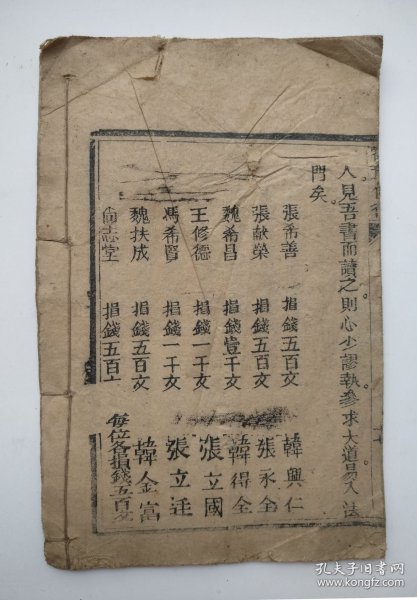 人見吾書而讀之則心少謬執參求大道易入法
門矣
張希善 捐錢五百文
張献榮 捐錢五百文
魏希昌 捐錢壹千文
王修德 捐錢一千文
馮希賢 捐錢一千文
魏扶成 捐錢五百文
尚志堂 捐錢五百
韓興仁
張永全
韓得全
張立國
張立廷
韓金富
每位各捐錢五百文
孔夫子旧书网
www.kongfz.com